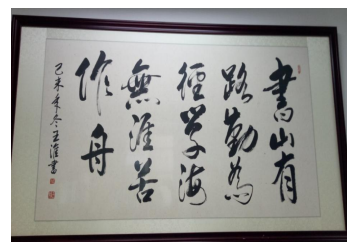 書山有
路勤為
徑學海
無涯苦
作舟
己未年冬王淮書